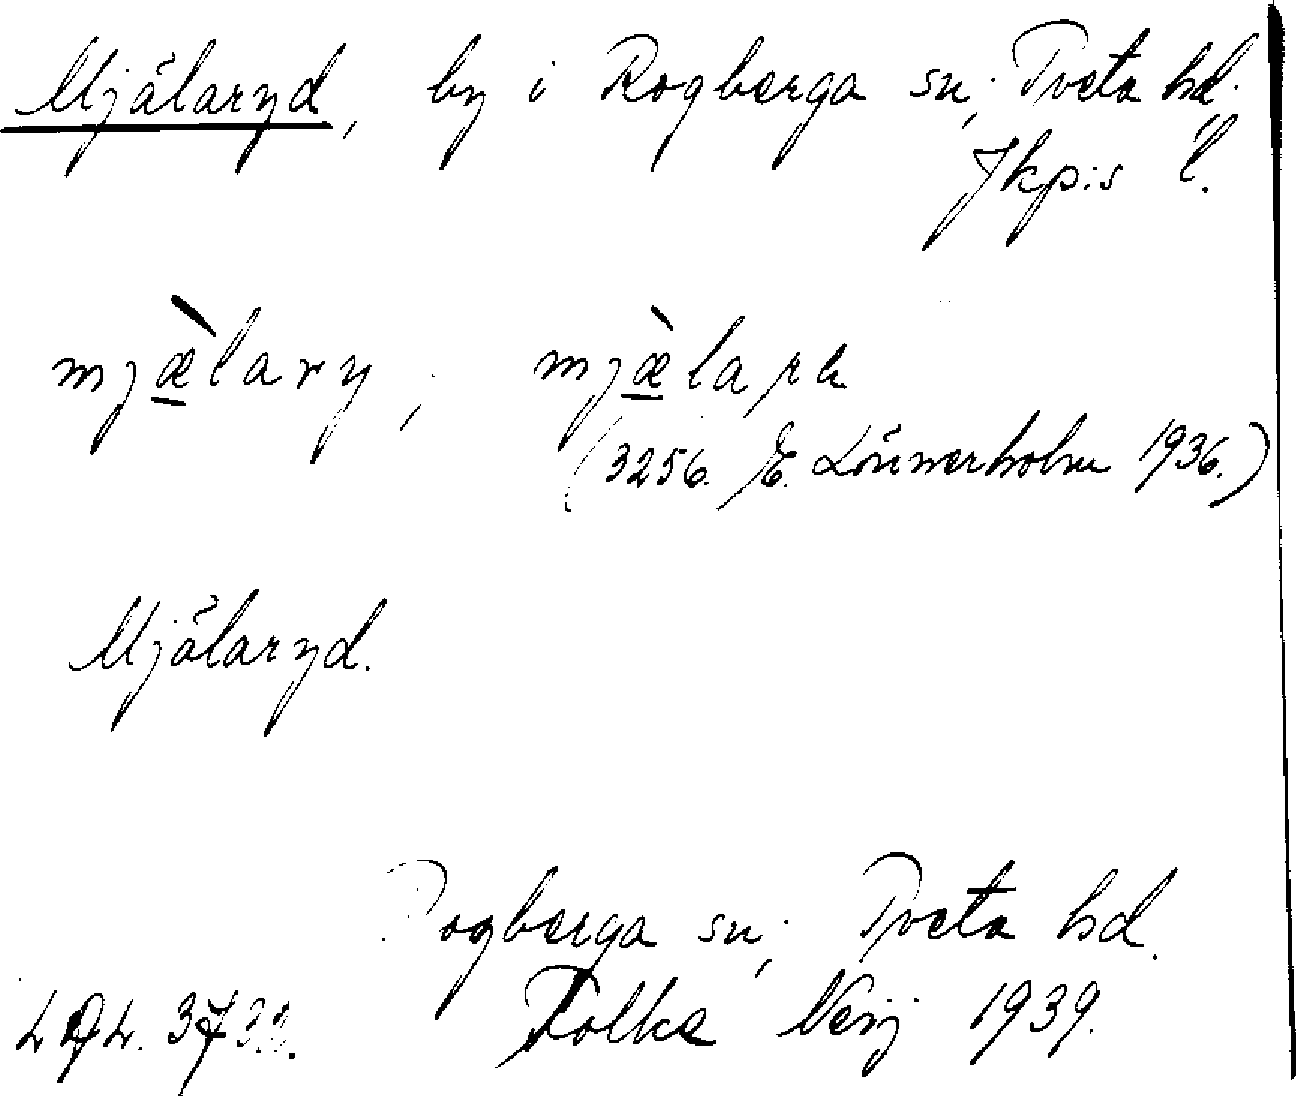 Mjälaryd, by i Rogberga sn; Tveta hd.
Jkp:s l.
mjæ̀lary, mjæ̀la
(3256. E. Lönnerholm 1936.)
Mjälaryd.
Rogberga sn; Tveta hd.
Folke Neij 1939.